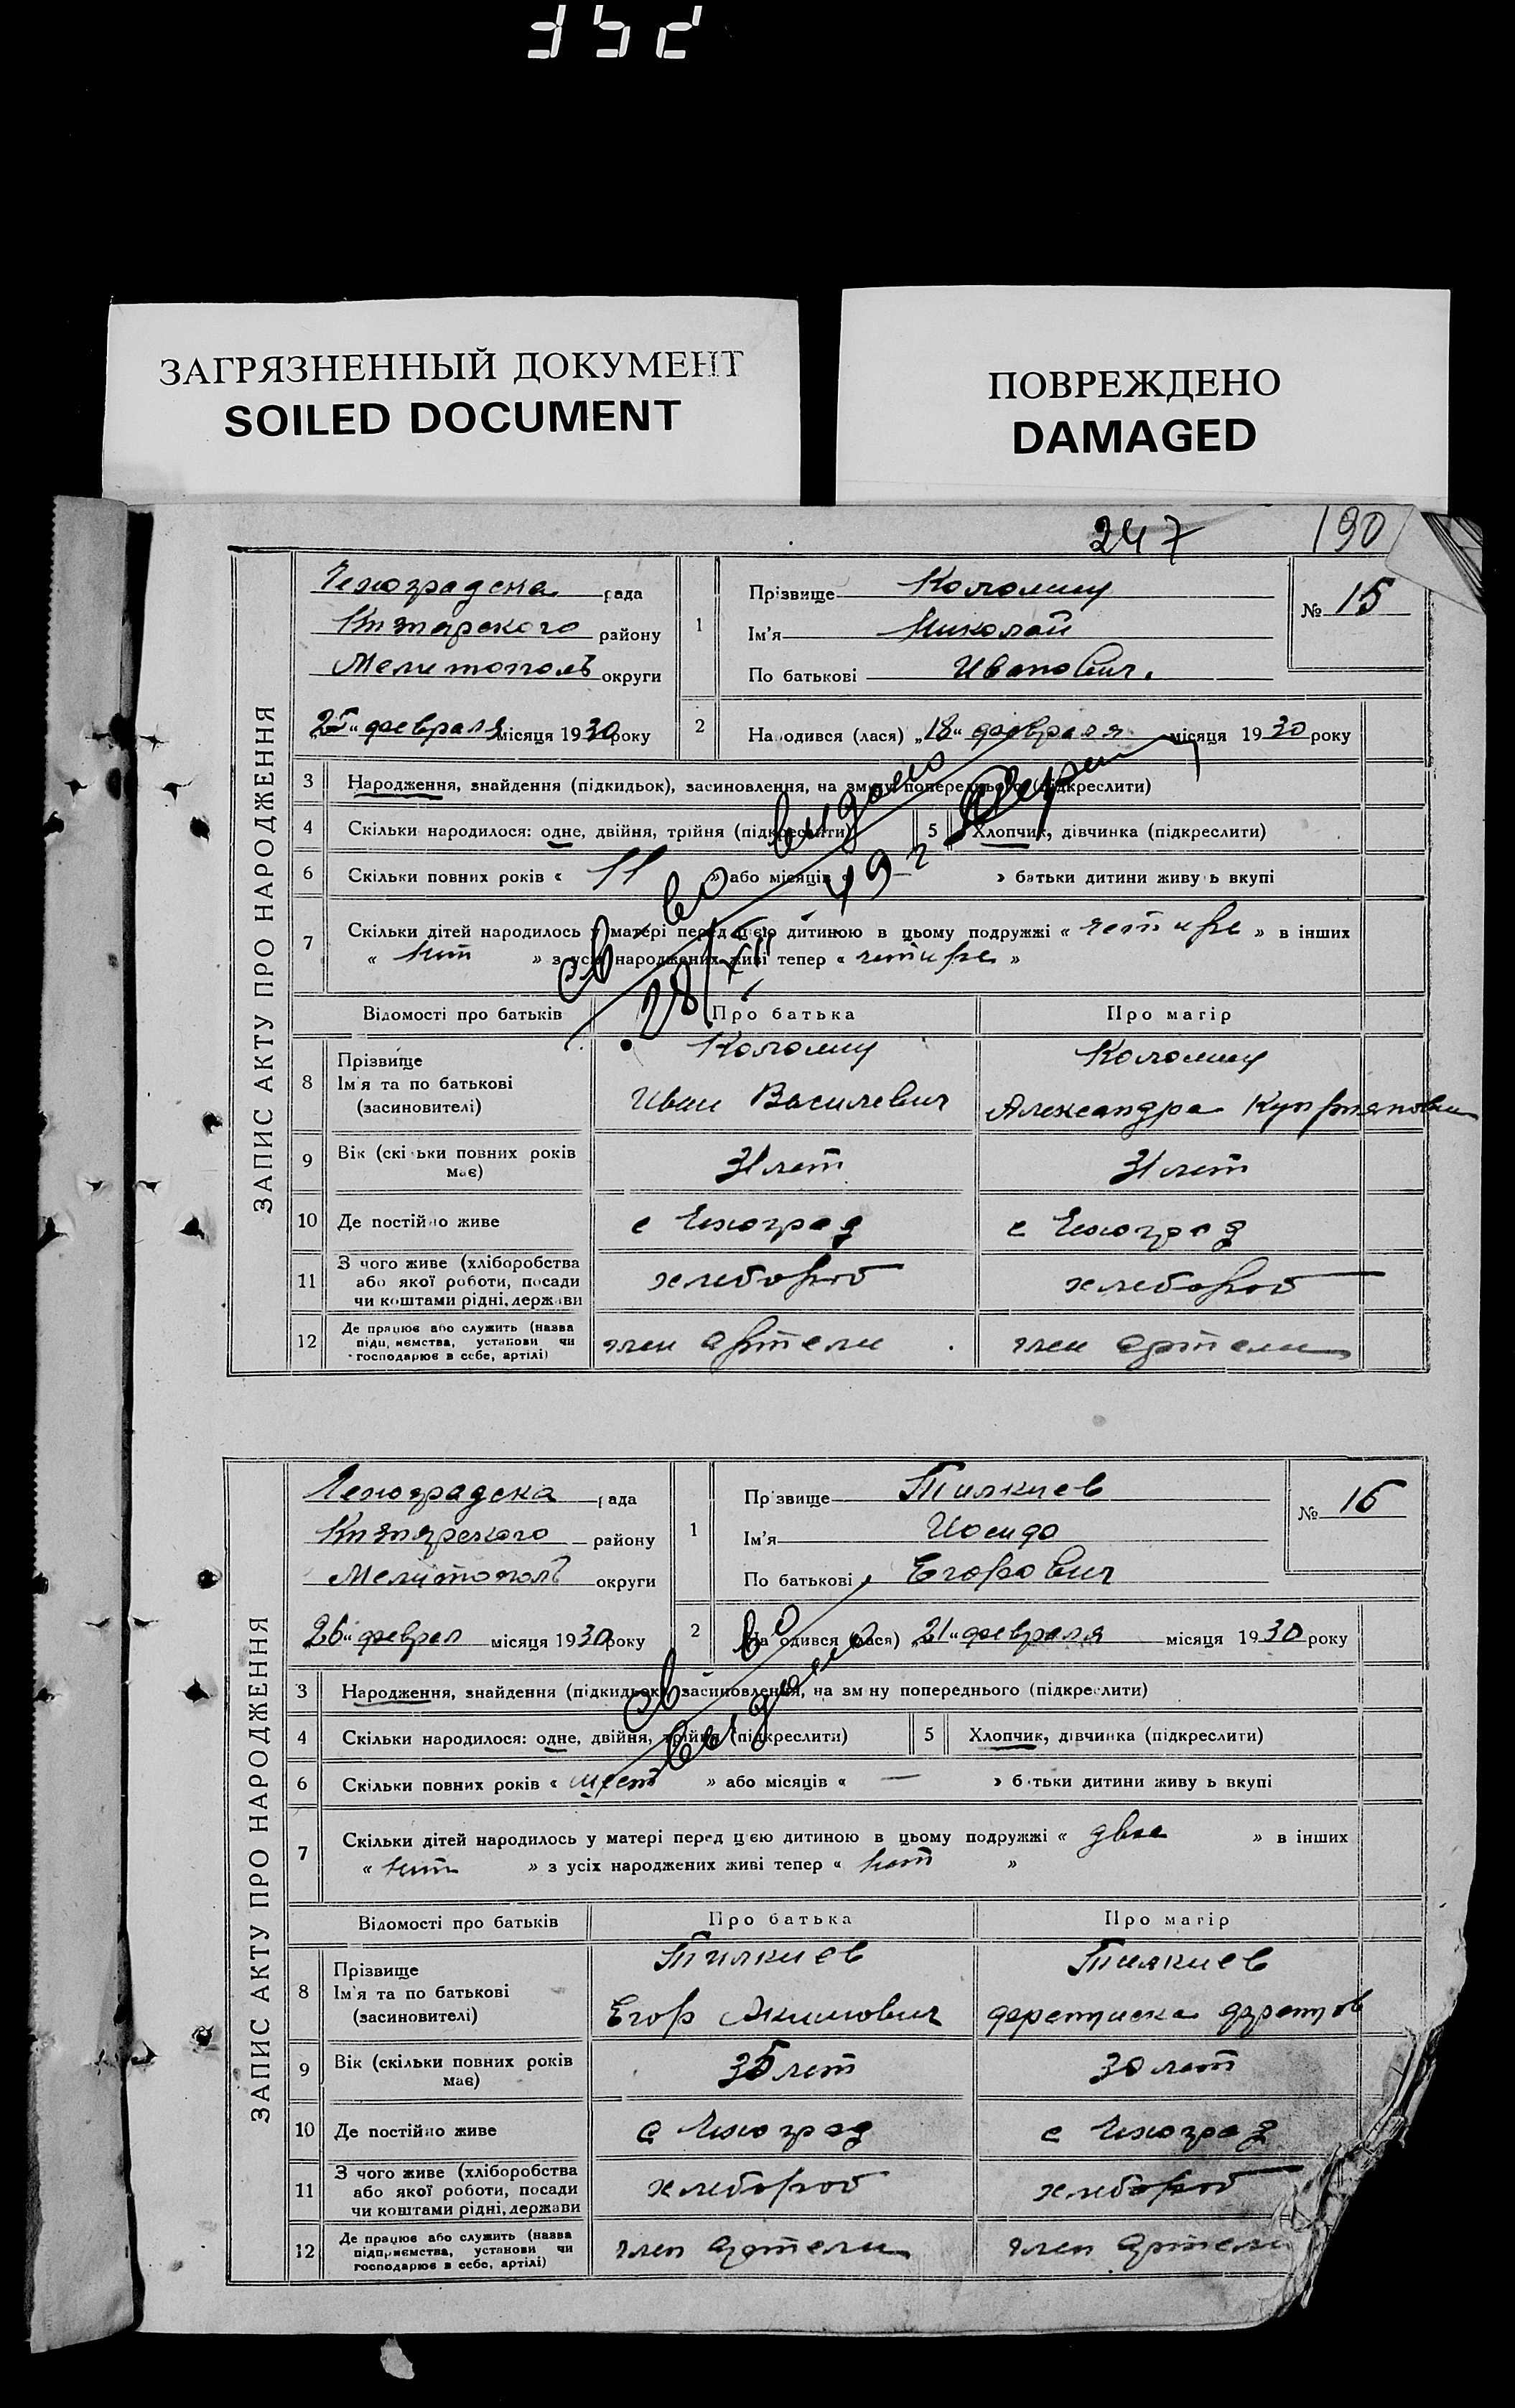 352
ЗАГРЯЗНЕННЫЙ ДОКУМЕНТ
SOILED DOCUMENT
ПОВРЕЖДЕНО
DAMAGED
247 190
ЗАПИС АКТУ ПРО НАРОДЖЕННЯ
рада
району
Мелитополь округи
25 " февраля місяця 1930 року
1 Прізвище Коломиц
Ім'я Николай
По батькові Иванович.
№ 15
2 Народився (лася) „18" февраля місяця 1930 року
3 Народження, знайдення (підкидьок), засиновлення, на зміну попереднього (підкреслити)
4 Скільки народилося: одне, двійня, трійня (підкреслити) 5 Хлопчик, дівчинка (підкреслити)
6 Скільки повних років « 11 » або місяців « » батьки дитини живуть вкупі
7 Скільки дітей народилось у матері перед цією дитиною в цьому подружжі « четире » в інших
« нит » з усіх народжених живі тепер « четире »
св во видано
28/XII 49 г
Відомості про батьків Про батька Про матір
8 Прізвище
Ім'я та по батькові
(засиновителі)
Коломиц
Иван Василевич
Коломиц
Александра
9 Вік (скільки повних років має) 31 лет 31 лет
10 Де постійно живе с с
11 З чого живе (хліборобства
або якої роботи, посади
чи коштами рідні, держави
хлебороб хлебороб
12 Де працює або служить (назва
підприємства, установи чи
господарює в себе, артілі)
член артели член артели
ЗАПИС АКТУ ПРО НАРОДЖЕННЯ
рада
району
Мелитополь округи
26 " феврал місяця 1930 року
1 Прізвище Тилкиев
Ім'я
По батькові Егорович
№ 16
2 Народився (лася) „21" февраля місяця 1930 року
3 Народження, знайдення (підкидьок), засиновлення, на зміну попереднього (підкреслити)
4 Скільки народилося: одне, двійня, трійня (підкреслити) 5 Хлопчик, дівчинка (підкреслити)
6 Скільки повних років « шест » або місяців « — » батьки дитини живуть вкупі
7 Скільки дітей народилось у матері перед цією дитиною в цьому подружжі « двое » в інших
« нит » з усіх народжених живі тепер « нит »
св во
выдано
Відомості про батьків Про батька Про матір
8 Прізвище
Ім'я та по батькові
(засиновителі)
Тилкиев
Егор Акимович
Тилкиев
9 Вік (скільки повних років має) 35 лет 30 лет
10 Де постійно живе с с
11 З чого живе (хліборобства
або якої роботи, посади
чи коштами рідні, держави
хлебороб хлебороб
12 Де працює або служить (назва
підприємства, установи чи
господарює в себе, артілі)
член артели член артели